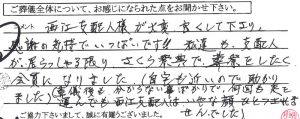 ご葬儀全体について、お感じになられた点をお聞かせ下さい。
コメント 西江支配人様が大変良くして下さり、
感謝の気持でいっぱいです!! 私達も、支配人
が居らっしゃる限り、さくら祭典で葬祭をしたく
会員になりました(自宅から近いので助かり
ました)(葬儀後も分からない事ばかりで、何回も足を
運んでも西江支配人はいやな顔ひとつされま
せんでした)
ご協力下さいまして、誠に有難うございました。